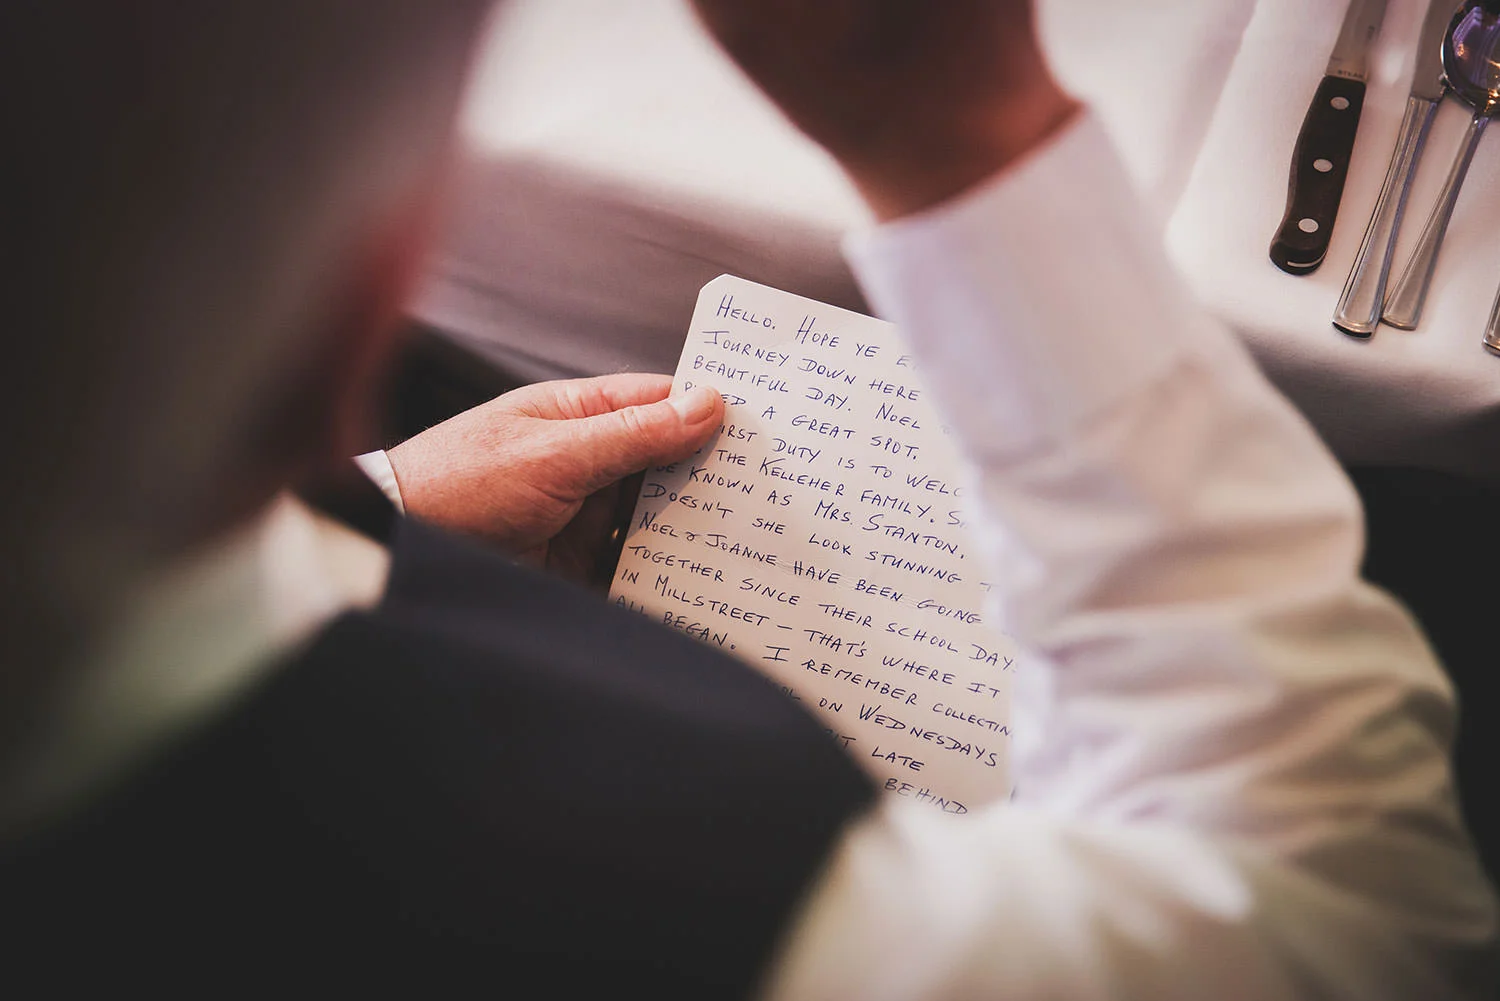 STEAK
HELLO. HOPE YE
JOURNEY DOWN HERE
BEAUTIFUL DAY. NOEL
A GREAT SPOT.
DUTY IS TO
THE KELLEHER FAMILY.
KNOWN AS MRS. STANTON.
DOESN'T SHE LOOK STUNNING
NOEL & JOANNE HAVE BEEN GOING
TOGETHER SINCE THEIR SCHOOL
IN MILLSTREET – THAT'S WHERE IT
ALL BEGAN. I REMEMBER
ON WEDNESDAYS
LATE
BEHIND